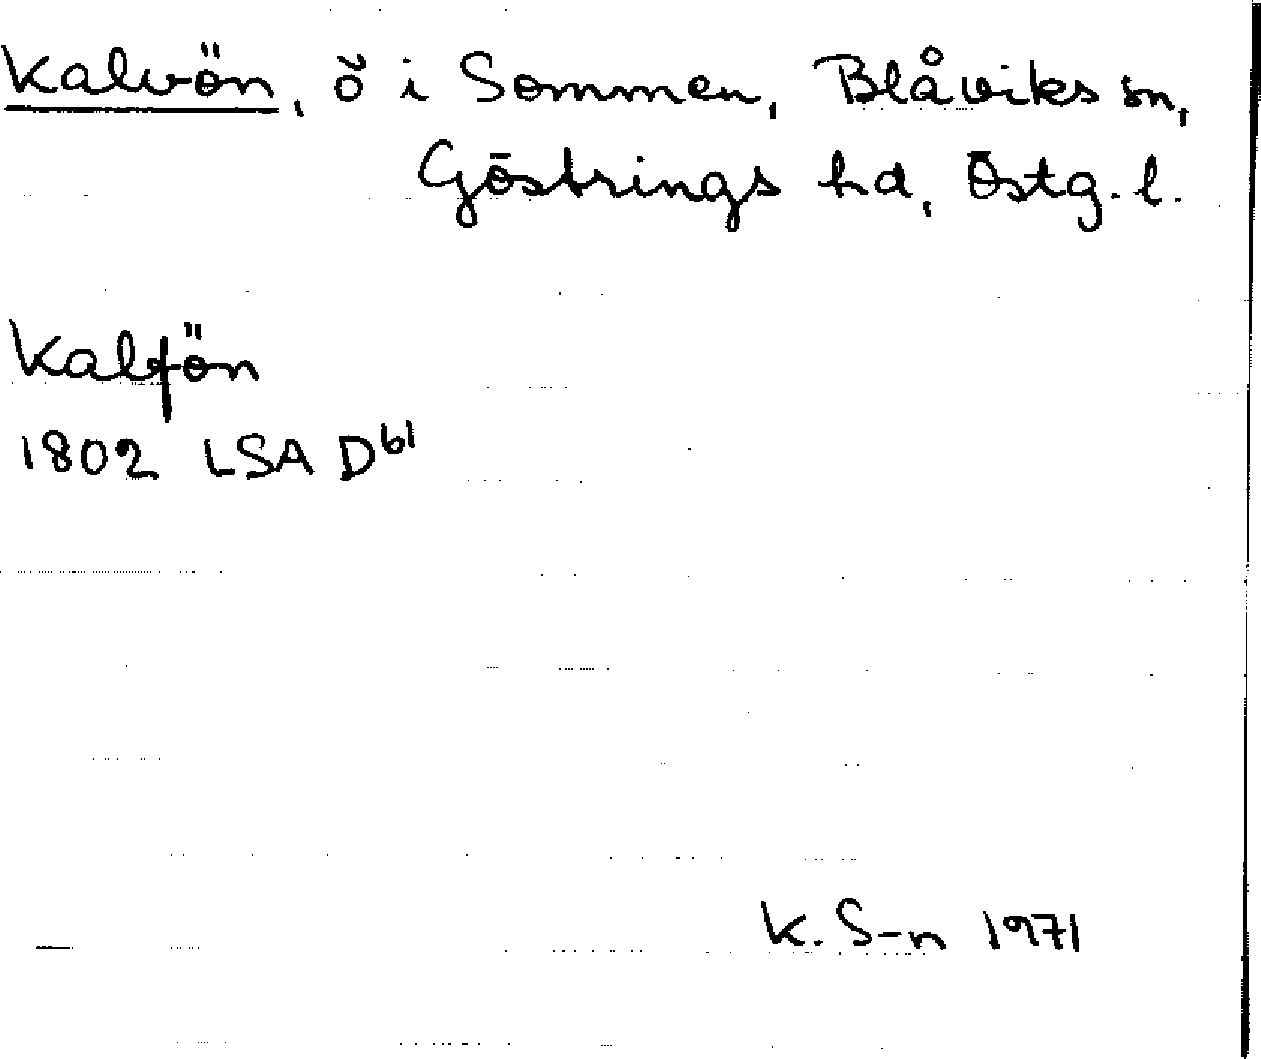 Kalvön, ö i Sommen, Blåviks sn,
Göstrings hd, Östg. l.
Kalfön
1802 LSA D61
K. S-n 1971